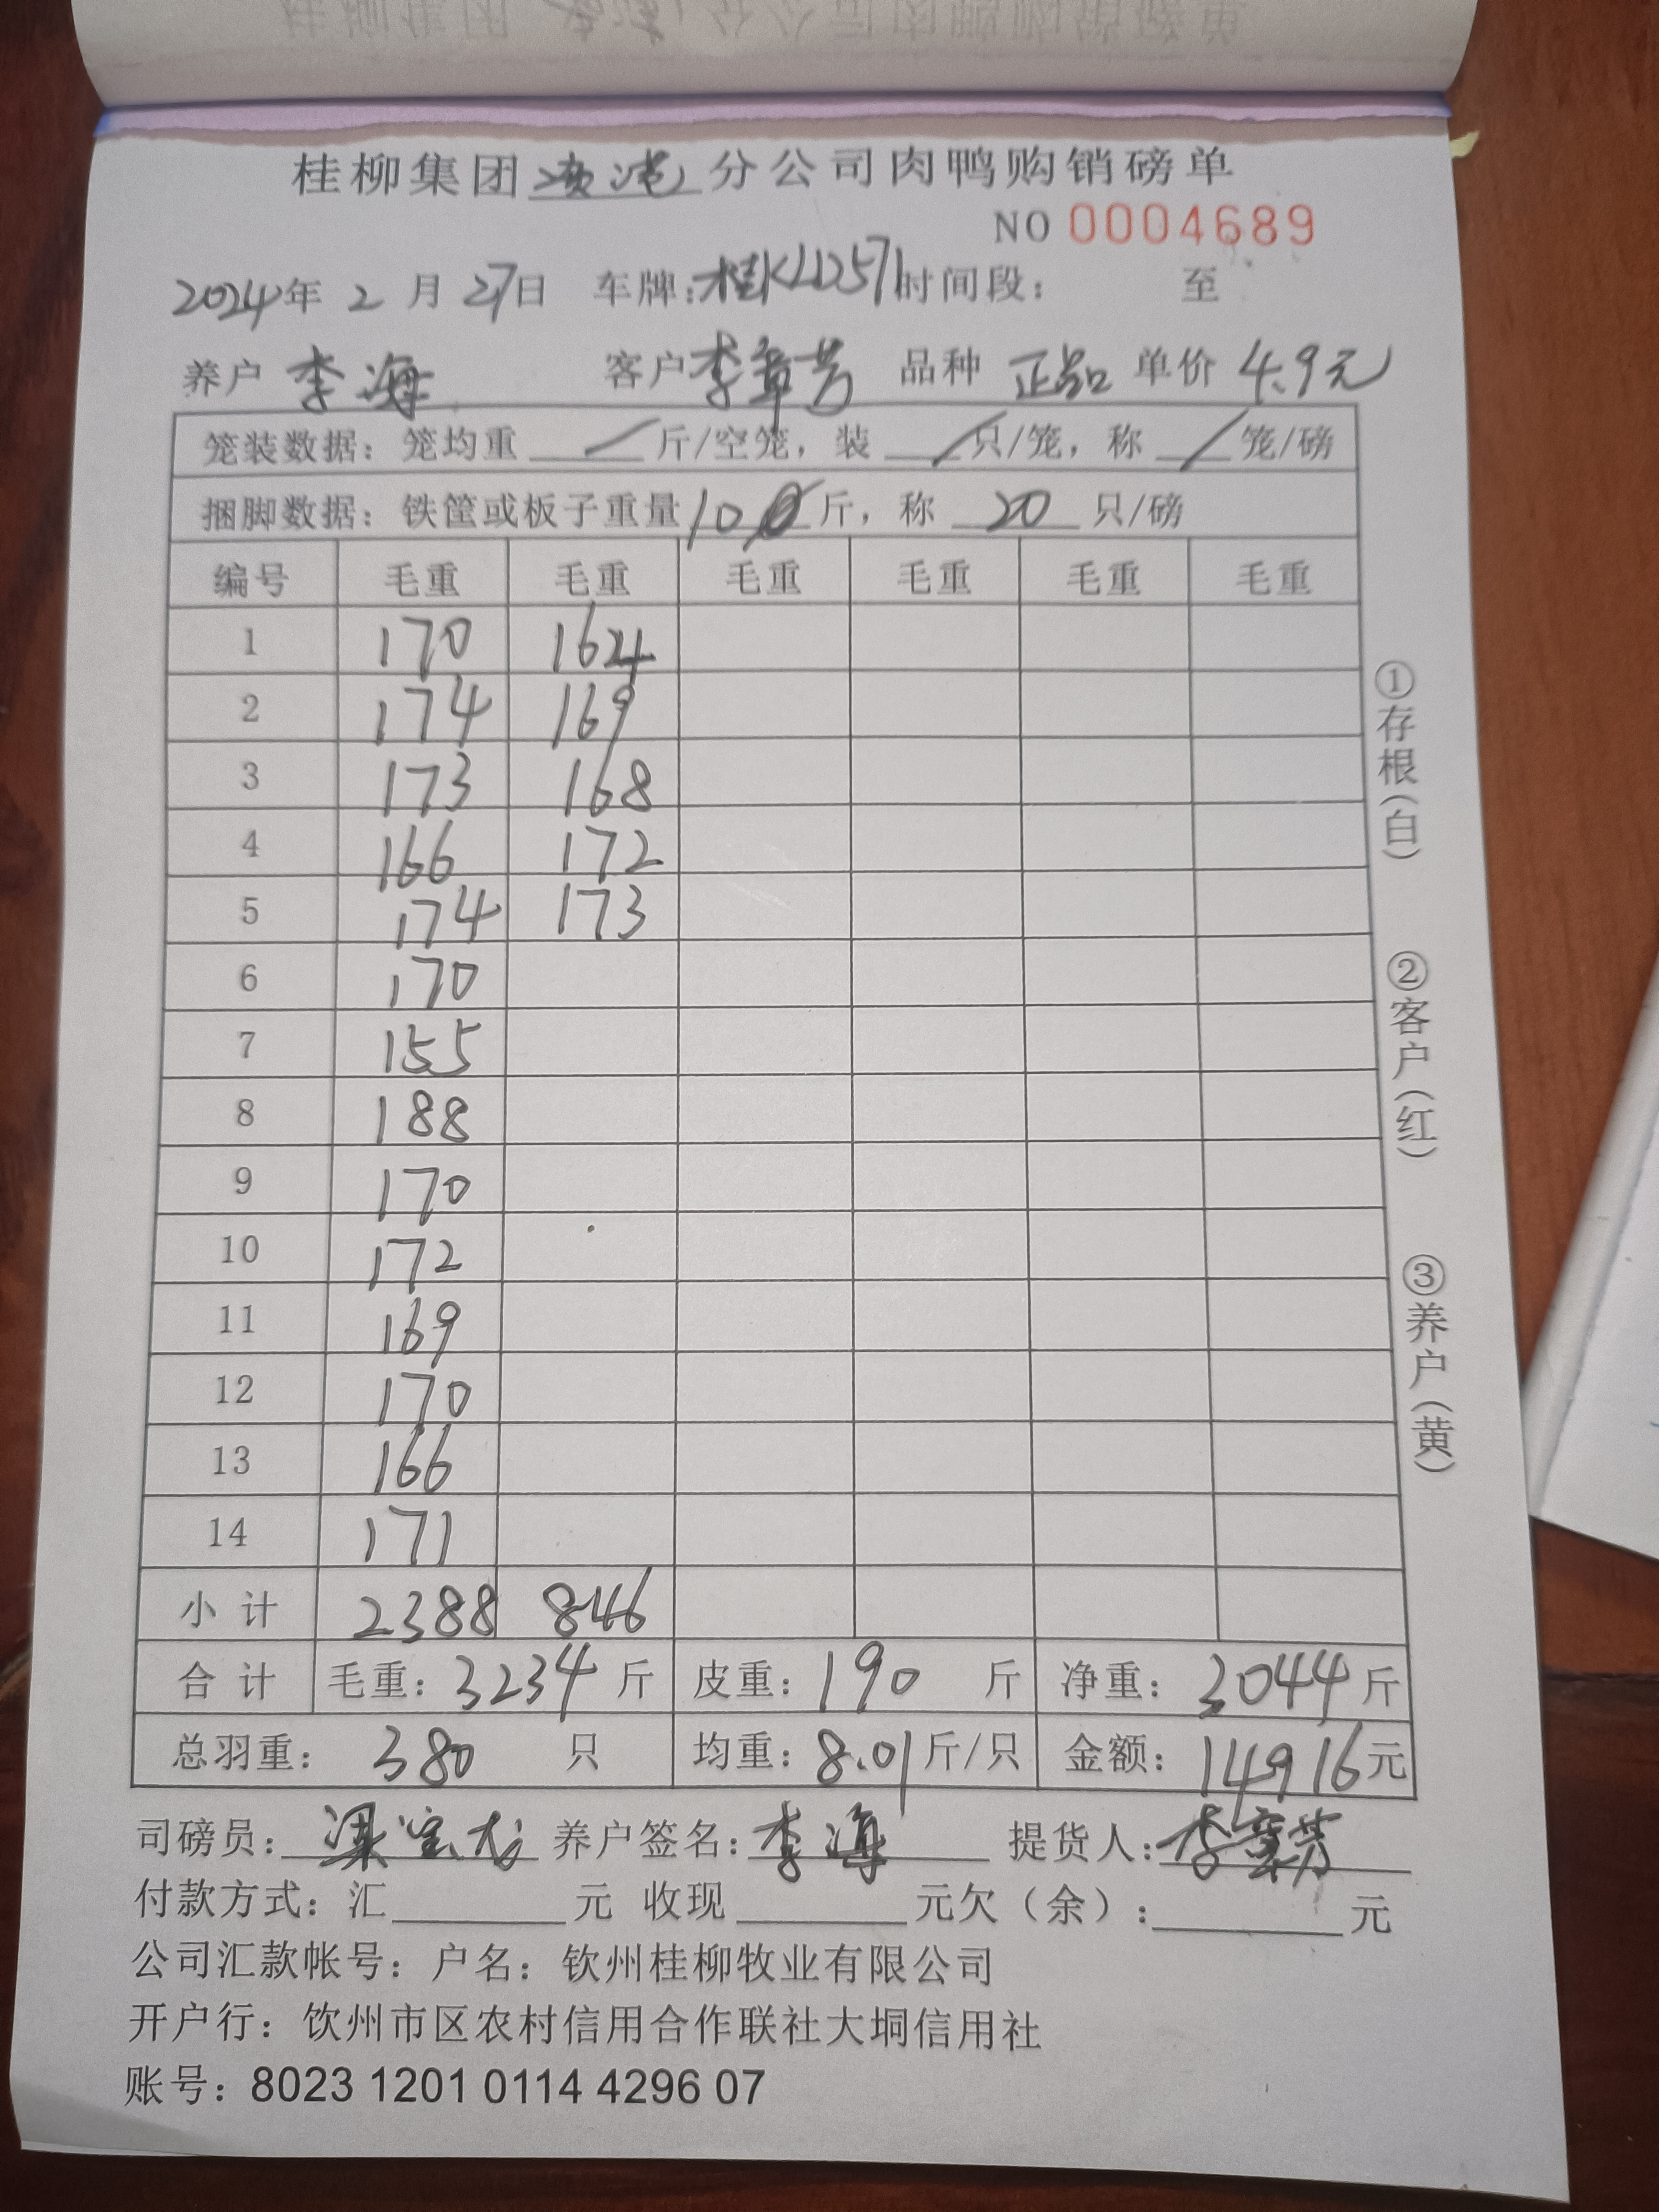 桂柳集团分公司肉鸭购销磅单
NO 0004689
2024年 2 月 27日 车牌:桂KLD571时间段: 至
养户 李海 客户李章芳 品种 正品 单价 4.9元
笼装数据: 笼均重 / 斤/空笼, 装 / 只/笼, 称 / 笼/磅
捆脚数据: 铁筐或板子重量10斤, 称 20 只/磅
编号 毛重 毛重 毛重 毛重 毛重 毛重
1 170 164
2 174 169
3 173 168
4 166 172
5 174 173
6 170
7 155
8 188
9 170
10 172
11 169
12 170
13 166
14 171
小计 2388 846
合计 毛重: 3234 斤 皮重: 190 斤 净重: 3044斤
总羽重: 380 只 均重: 8.01斤/只 金额: 14916元
司磅员: 养户签名: 李海 提货人:李章芳
付款方式: 汇 元 收现 元欠(余): 元
公司汇款帐号: 户名: 钦州桂柳牧业有限公司
开户行: 饮州市区农村信用合作联社大垌信用社
账号: 8023 1201 0114 4296 07
①存根(白)
②客户(红)
③养户(黄)